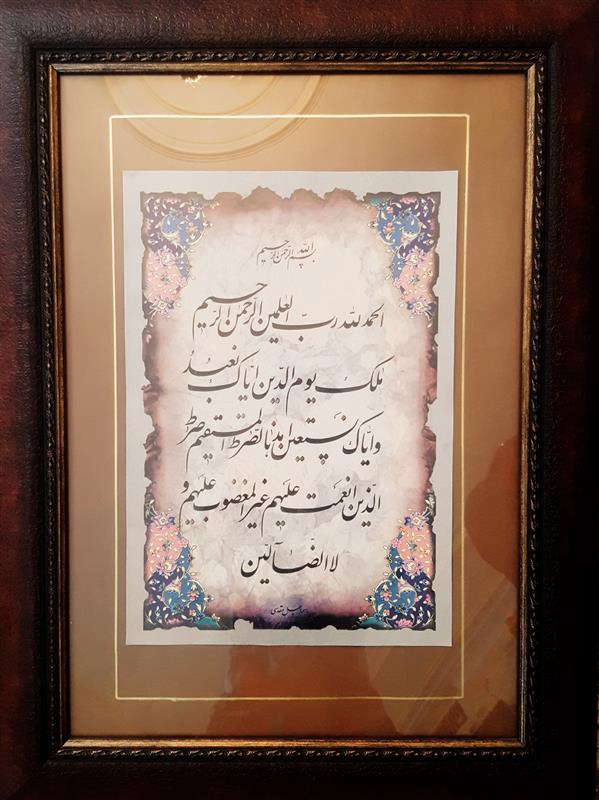 بسم الله الرحمن الرحیم
الحمد لله ربّ العلمین الرّحمن الرّحیم
ملک یوم الدّین ایّاک نعبد
وایّاک نستعین اهدنا الصّرط المستقیم صرط
الّذین انعمت علیهم غیر المغضوب علیهم و
لا الضّآلّین